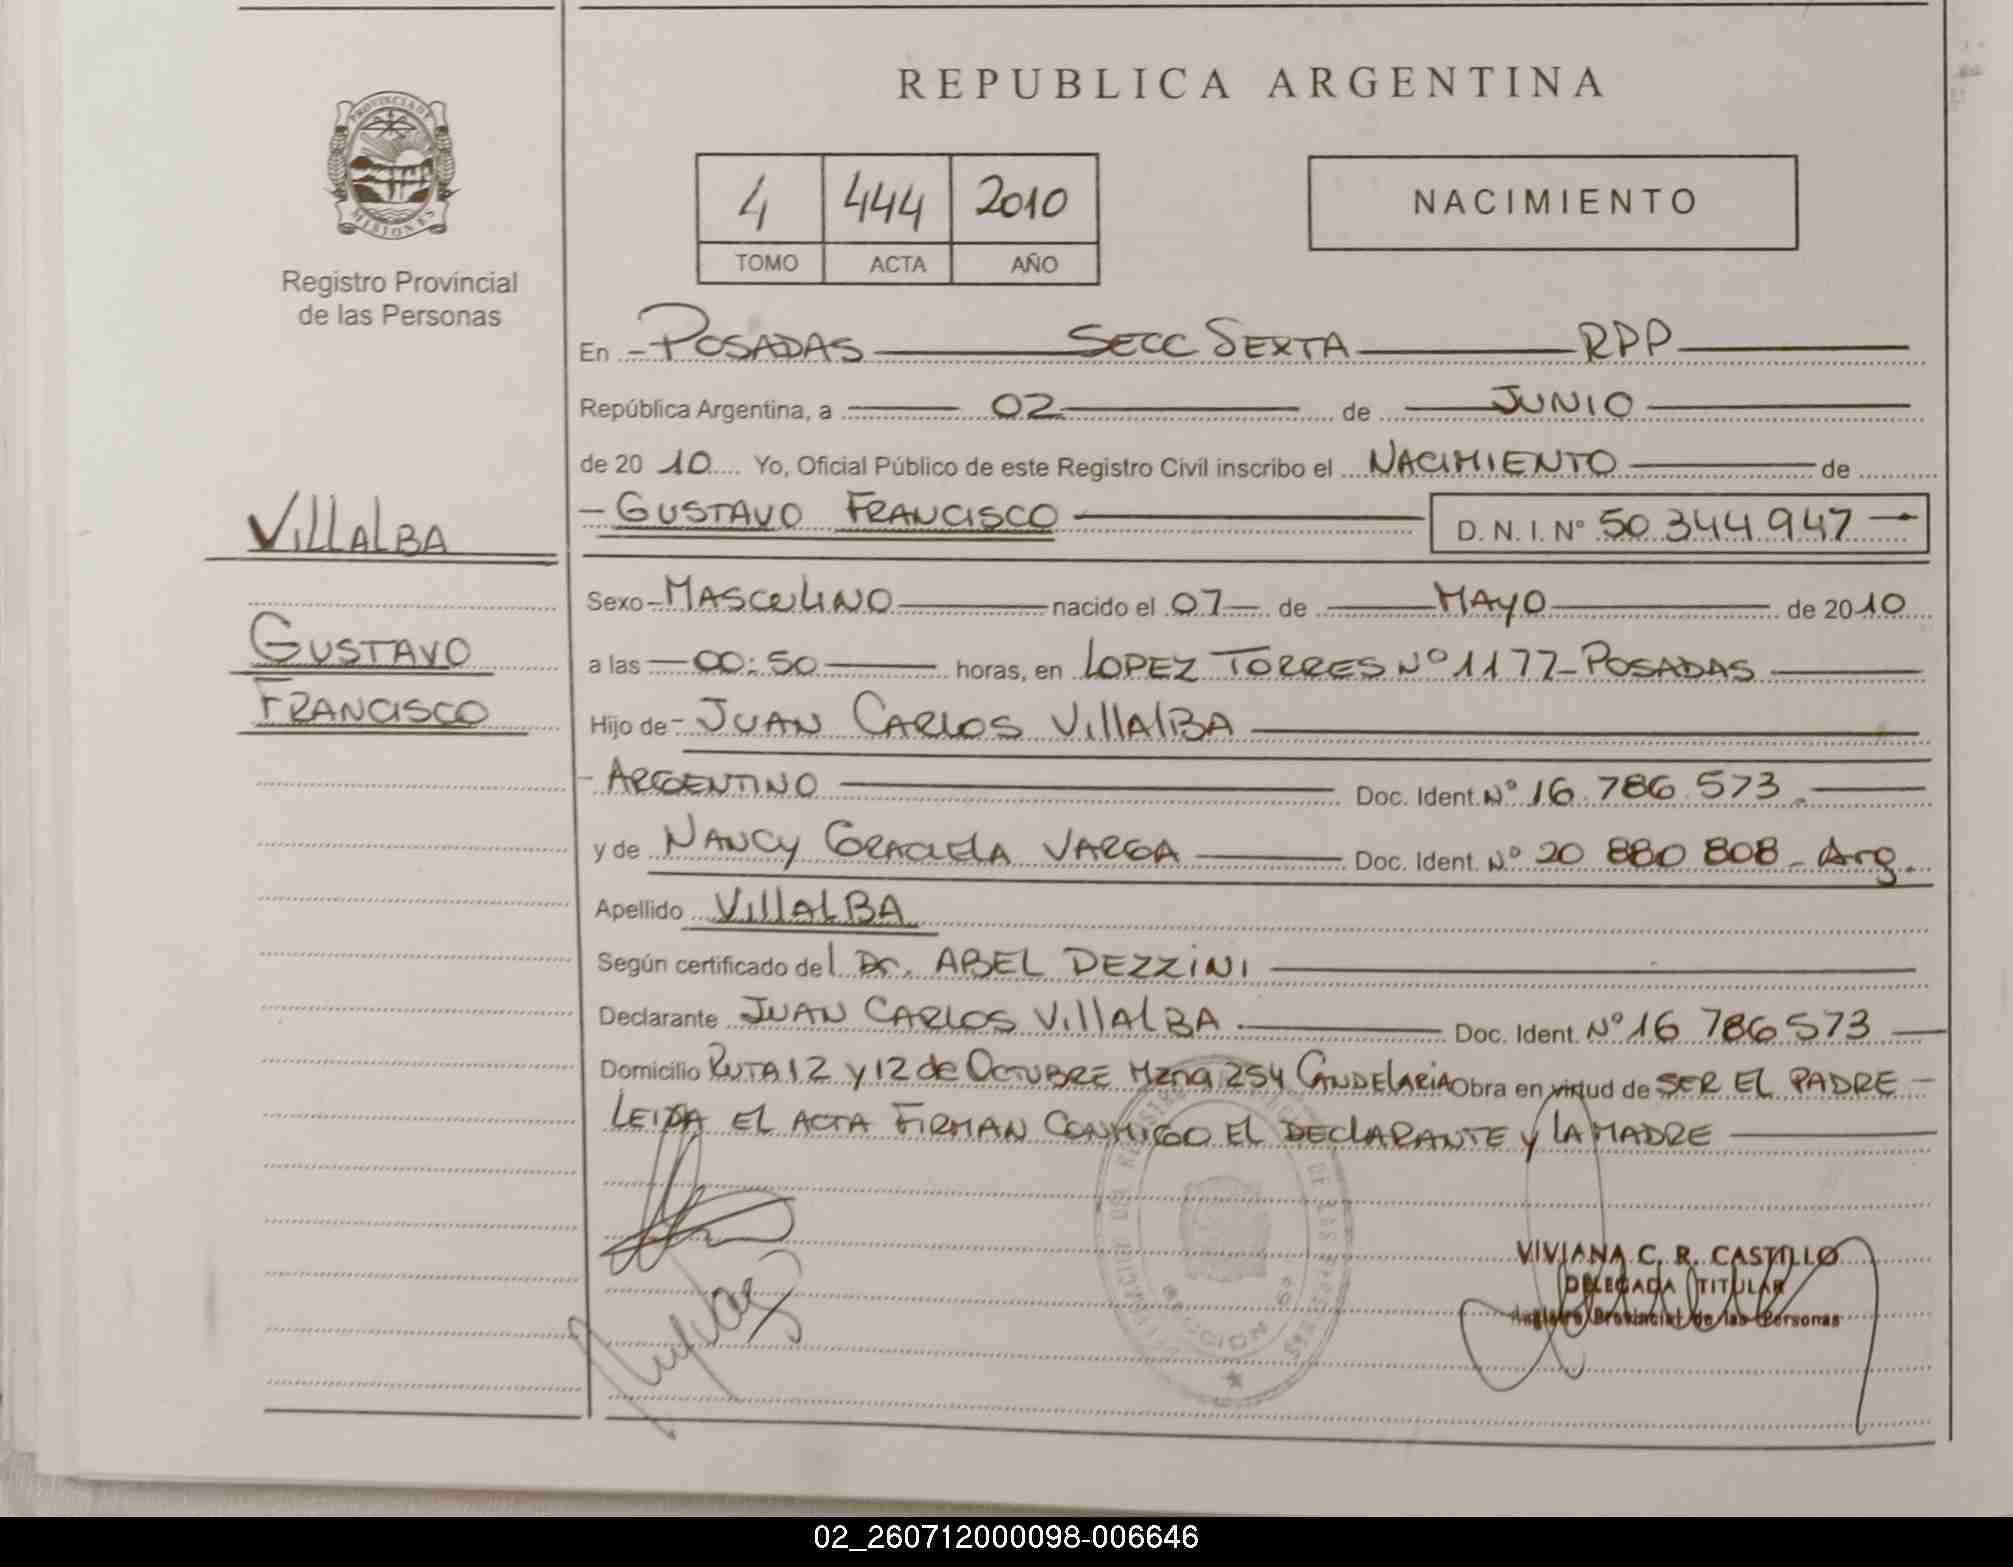 REPUBLICA ARGENTINA
PROVINCIA DE MISIONES
Registro Provincial
de las Personas
4 444 2010
TOMO ACTA AÑO
NACIMIENTO
En - POSADAS SECC SEXTA RPP
República Argentina, a 02 de JUNIO
de 2010 Yo, Oficial Público de este Registro Civil inscribo el NACIMIENTO de
- GUSTAVO FRANCISCO D. N. I. Nº 50.344.947 -
VILLALBA
GUSTAVO
FRANCISCO
Sexo - MASCULINO nacido el 07 de MAYO de 2010
a las 00:50 horas, en LOPEZ TORRES Nº 1177 - POSADAS
Hijo de - JUAN CARLOS VILLALBA
- ARGENTINO Doc. Ident. Nº 16.786.573.
y de NANCY GRACIELA VARGA Doc. Ident. Nº 20 880 808 - Arg.
Apellido VILLALBA
Según certificado del Dr. ABEL DEZZINI
Declarante JUAN CARLOS VILLALBA Doc. Ident. Nº 16 786573
Domicilio RUTA 12 y 12 de OCTUBRE Mzna 254 CANDELARIA Obra en virtud de SER EL PADRE -
LEIDA EL ACTA FIRMAN CONMIGO EL DECLARANTE y LA MADRE
VIVIANA C. R. CASTILLO
DELEGADA TITULAR
Registro Provincial de las Personas
SECCION 6ª
02_260712000098-006646